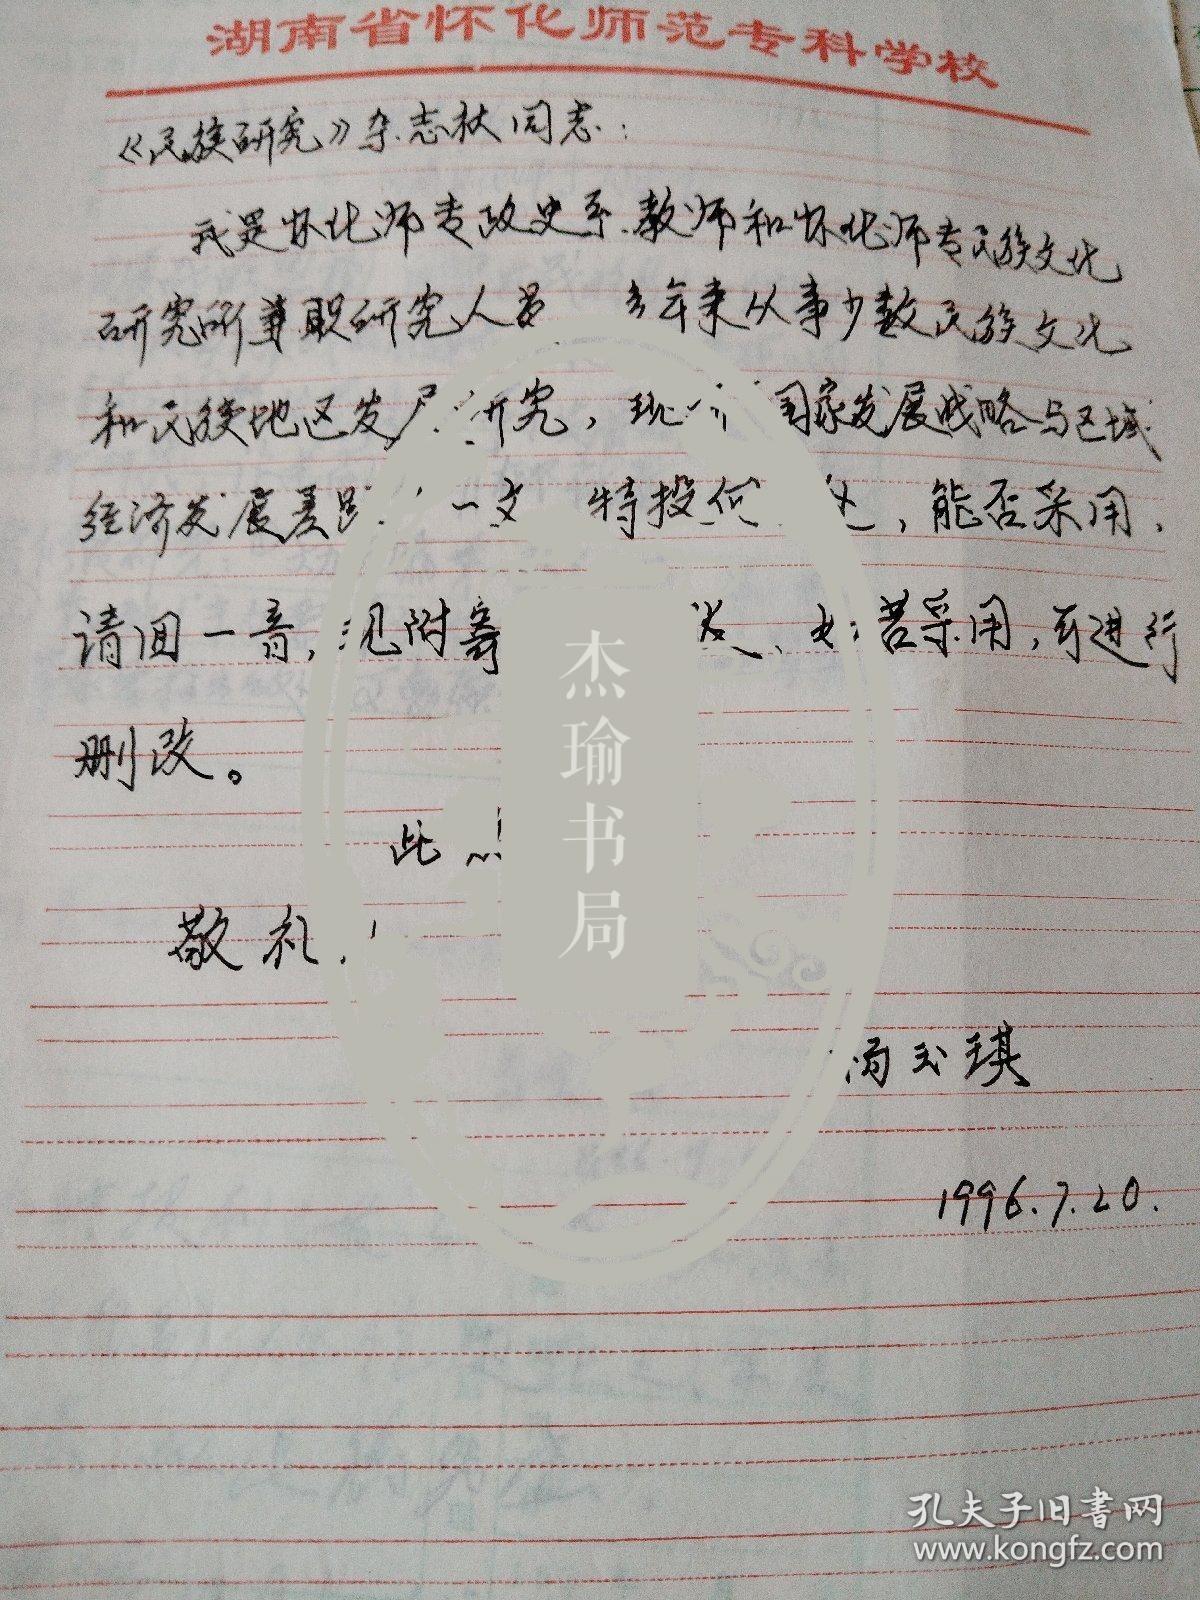 湖南省怀化师范专科学校
《民族研究》杂志社同志：
我是怀化师专政史系教师和怀化师专民族文化
研究所兼职研究人员 多年来从事少数民族文化
和民族地区发展研究，现 国家发展战略与区域
经济发展差距 一文 特投 ，能否采用，
请回一音， 附寄 若采用，可进行
删改。
此
敬礼！
杰瑜书局
玉琪
1996.7.20.
孔夫子旧书网
www.kongfz.com